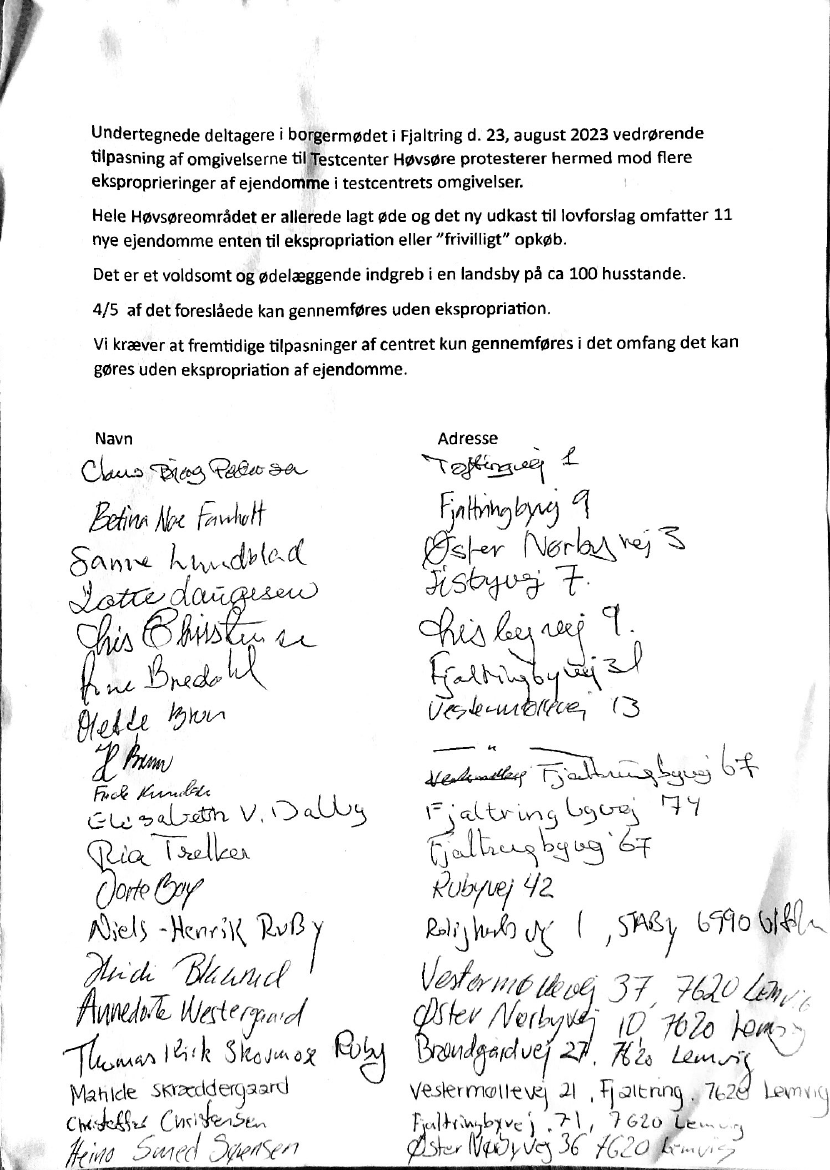 Undertegnede deltagere i borgermødet i Fjaltring d. 23, august 2023 vedrørende
tilpasning af omgivelserne til Testcenter Høvsøre protesterer hermed mod flere
eksproprieringer af ejendomme i testcentrets omgivelser.
Hele Høvsøreområdet er allerede lagt øde og det ny udkast til lovforslag omfatter 11
nye ejendomme enten til ekspropriation eller ”frivilligt” opkøb.
Det er et voldsomt og ødelæggende indgreb i en landsby på ca 100 husstande.
4/5 af det foreslåede kan gennemføres uden ekspropriation.
Vi kræver at fremtidige tilpasninger af centret kun gennemføres i det omfang det kan
gøres uden ekspropriation af ejendomme.
Navn Adresse
Claus 1
Betina Noe Fjaltringbyvej 9
Sanne Lundblad Øster Nørbyvej 3
Lotte Laugesen 7.
Christensen 9.
Bredahl Fjaltringbyvej 31
Brun Vestermøllevej 13
Brun — " —
Fjaltringbyvej 67
Elisabeth V. Dalby Fjaltringbyvej 74
Ria Trelker Fjaltringbyvej 67
Dorte Boy Rubyvej 42
Niels-Henrik Ruby 1, STABY 6990
Heidi Vestermøllevej 37, 7620 Lemvig
Annedorte Westergaard Øster Nørbyvej 10, 7620 Lemvig
Thomas Kirk Ruby Brøndgårdvej 27. 7620 Lemvig
Matilde Skræddergaard Vestermøllevej 21, Fjaltring, 7620 Lemvig
Christoffer Christensen Fjaltringbyvej. 71, 7620 Lemvig
Heino Smed Sørensen Øster Nørbyvej 36 7620 Lemvig